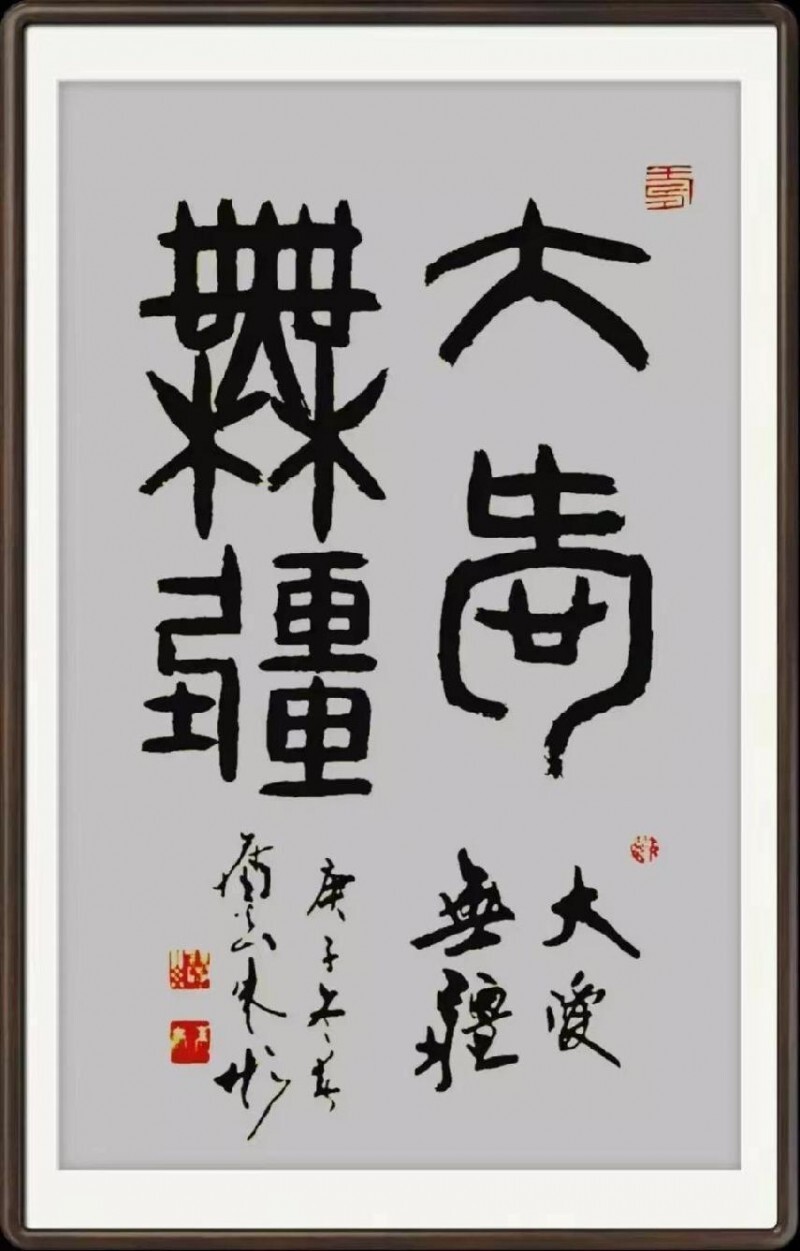 大愛
無疆
大愛
無疆
庚子冬
朱彤